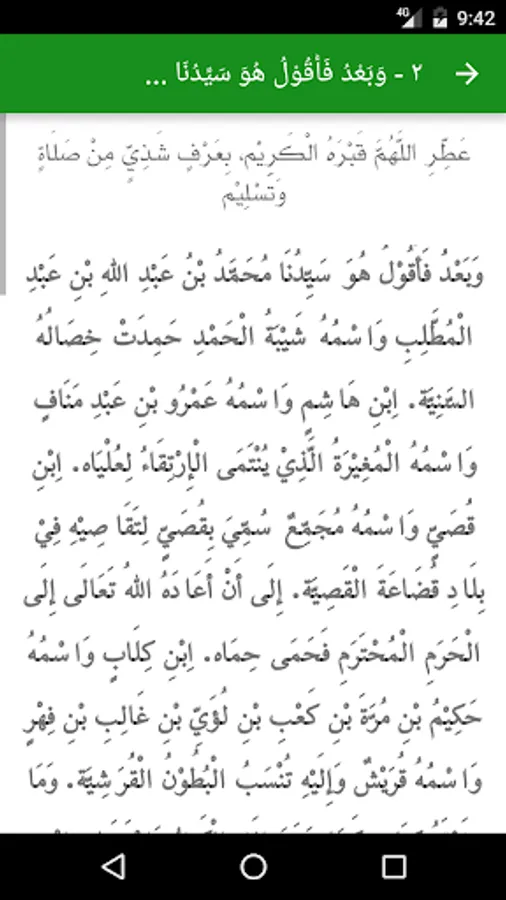 4G 9:42
٢ - وَبَعْدُ فَأَقُوْلُ هُوَ سَيِّدُنَا ...
عَطِّرِ اللَّهُمَّ قَبْرَهُ الْكَرِيْم، بِعَرْفٍ شَذِيٍّ مِنْ صَلَاةٍ
وَتَسْلِيْم
وَبَعْدُ فَأَقُوْلُ هُوَ سَيِّدُنَا مُحَمَّدُ بْنُ عَبْدِ اللهِ بْنِ عَبْدِ
الْمُطَّلِبِ وَاسْمُهُ شَيْبَةُ الْحَمْدِ حَمِدَتْ خِصَالُهُ
السَّنِيَّة. اِبْنِ هَاشِمٍ وَاسْمُهُ عَمْرُو بْنِ عَبْدِ مَنَافٍ
وَاسْمُهُ الْمُغِيْرَةُ الَّذِيْ يُنْتَمَى الْإِرْتِقَاءُ لِعُلْيَاه. اِبْنِ
قُصَيٍّ وَاسْمُهُ مُجَمِّعٌ سُمِّيَ بِقُصَيٍّ لِتَقَاصِيْهِ فِيْ
بِلَادِ قُضَاعَةَ الْقَصِيَّة. إِلَى أَنْ أَعَادَهُ اللهُ تَعَالَى إِلَى
الْحَرَمِ الْمُحْتَرَمِ فَحَمَى حِمَاه. اِبْنِ كِلَابٍ وَاسْمُهُ
حَكِيْمُ بْنِ مُرَّةَ بْنِ كَعْبِ بْنِ لُؤَيِّ بْنِ غَالِبِ بْنِ فِهْرٍ
وَاسْمُهُ قُرَيْشٌ وَإِلَيْهِ تُنْسَبُ الْبُطُوْنُ الْقُرَشِيَّة. وَمَا